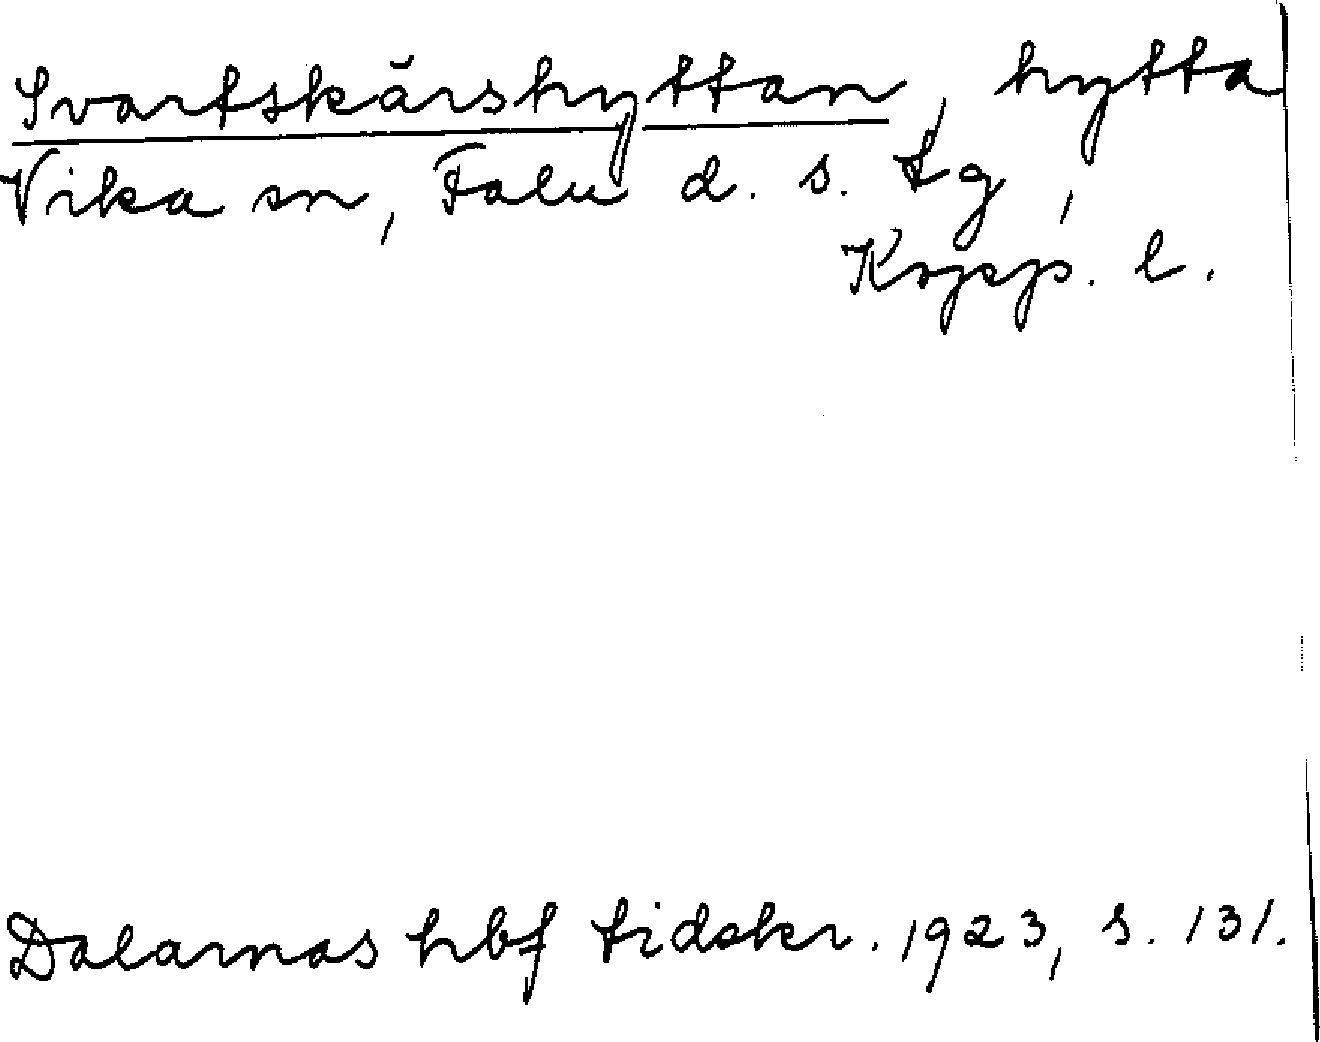 Svartskärshyttan, hytta
Vika sn, Falu d. s. tg,
Kopp. l.
Dalarnas hbf tidskr. 1923, s. 131.